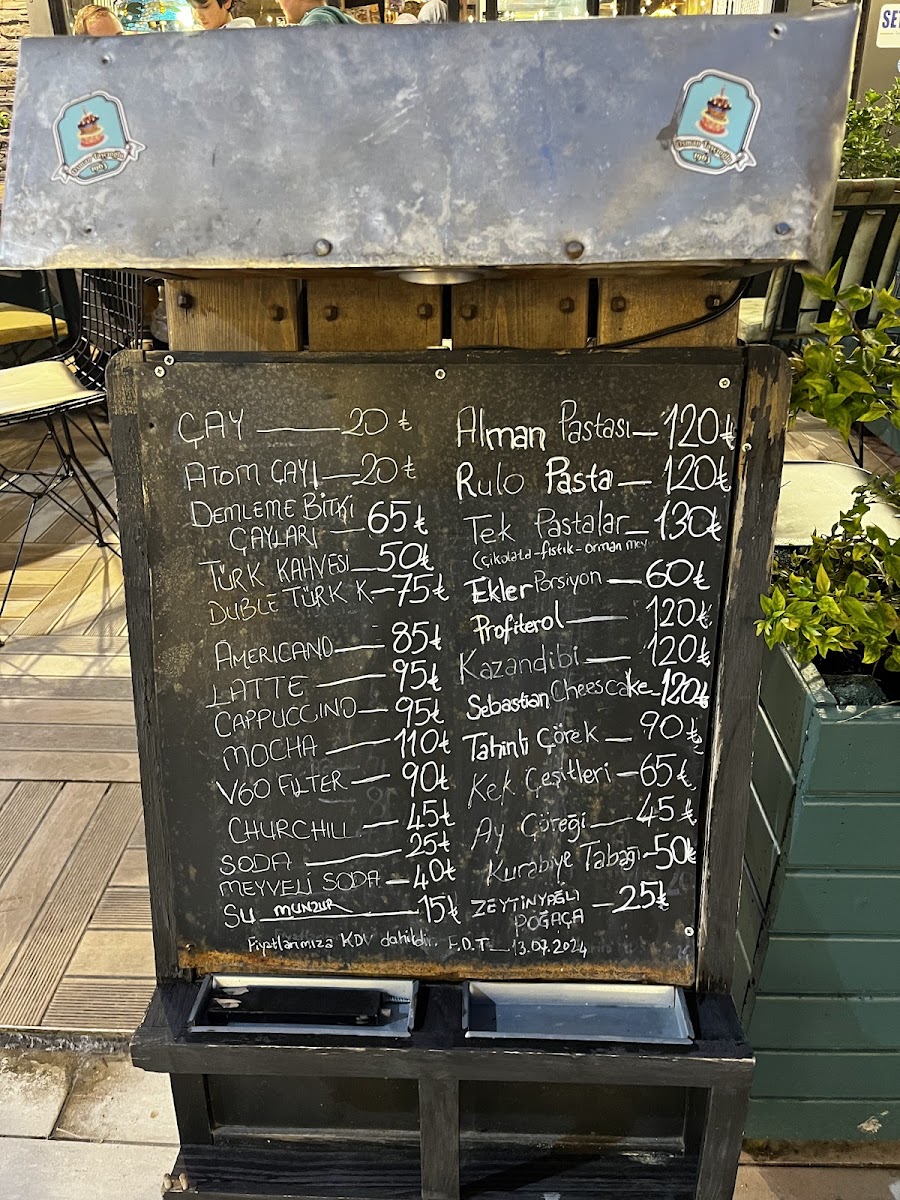 SE
Osman Tavuçoğlu
1963
ÇAY 20 ₺
ATOM ÇAYI 20 ₺
DEMLEME BİTKİ
ÇAYLARI 65 ₺
TÜRK KAHVESİ 50 ₺
DUBLE TÜRK K 75 ₺
AMERICANO 85 ₺
LATTE 95 ₺
CAPPUCCINO 95 ₺
MOCHA 110 ₺
V60 FILTER 90 ₺
CHURCHILL 45 ₺
SODA 25 ₺
MEYVELİ SODA 40 ₺
SU MUNZUR 15 ₺
Alman Pastası 120 ₺
Rulo Pasta 120 ₺
Tek Pastalar 130 ₺
(Çikolata-fıstık-orman mey
Ekler Porsiyon 60 ₺
Profiterol 120 ₺
Kazandibi 120 ₺
Sebastian Cheescake 120 ₺
Tahinli Çörek 90 ₺
Kek Çeşitleri 65 ₺
Ay Çöreği 45 ₺
Kurabiye Tabağı 50 ₺
ZEYTİNYAĞLI
POĞAÇA 25 ₺
Fiyatlarımıza KDV dahildir. F.D.T 13.07.2024